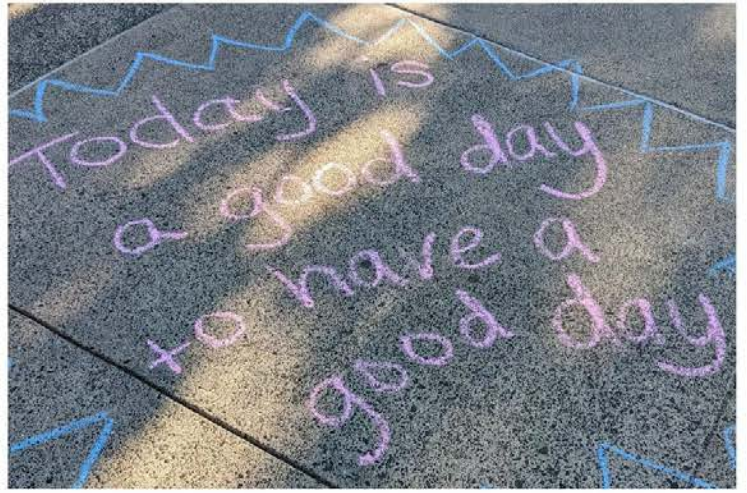 Today is
a good day
to have a
good day